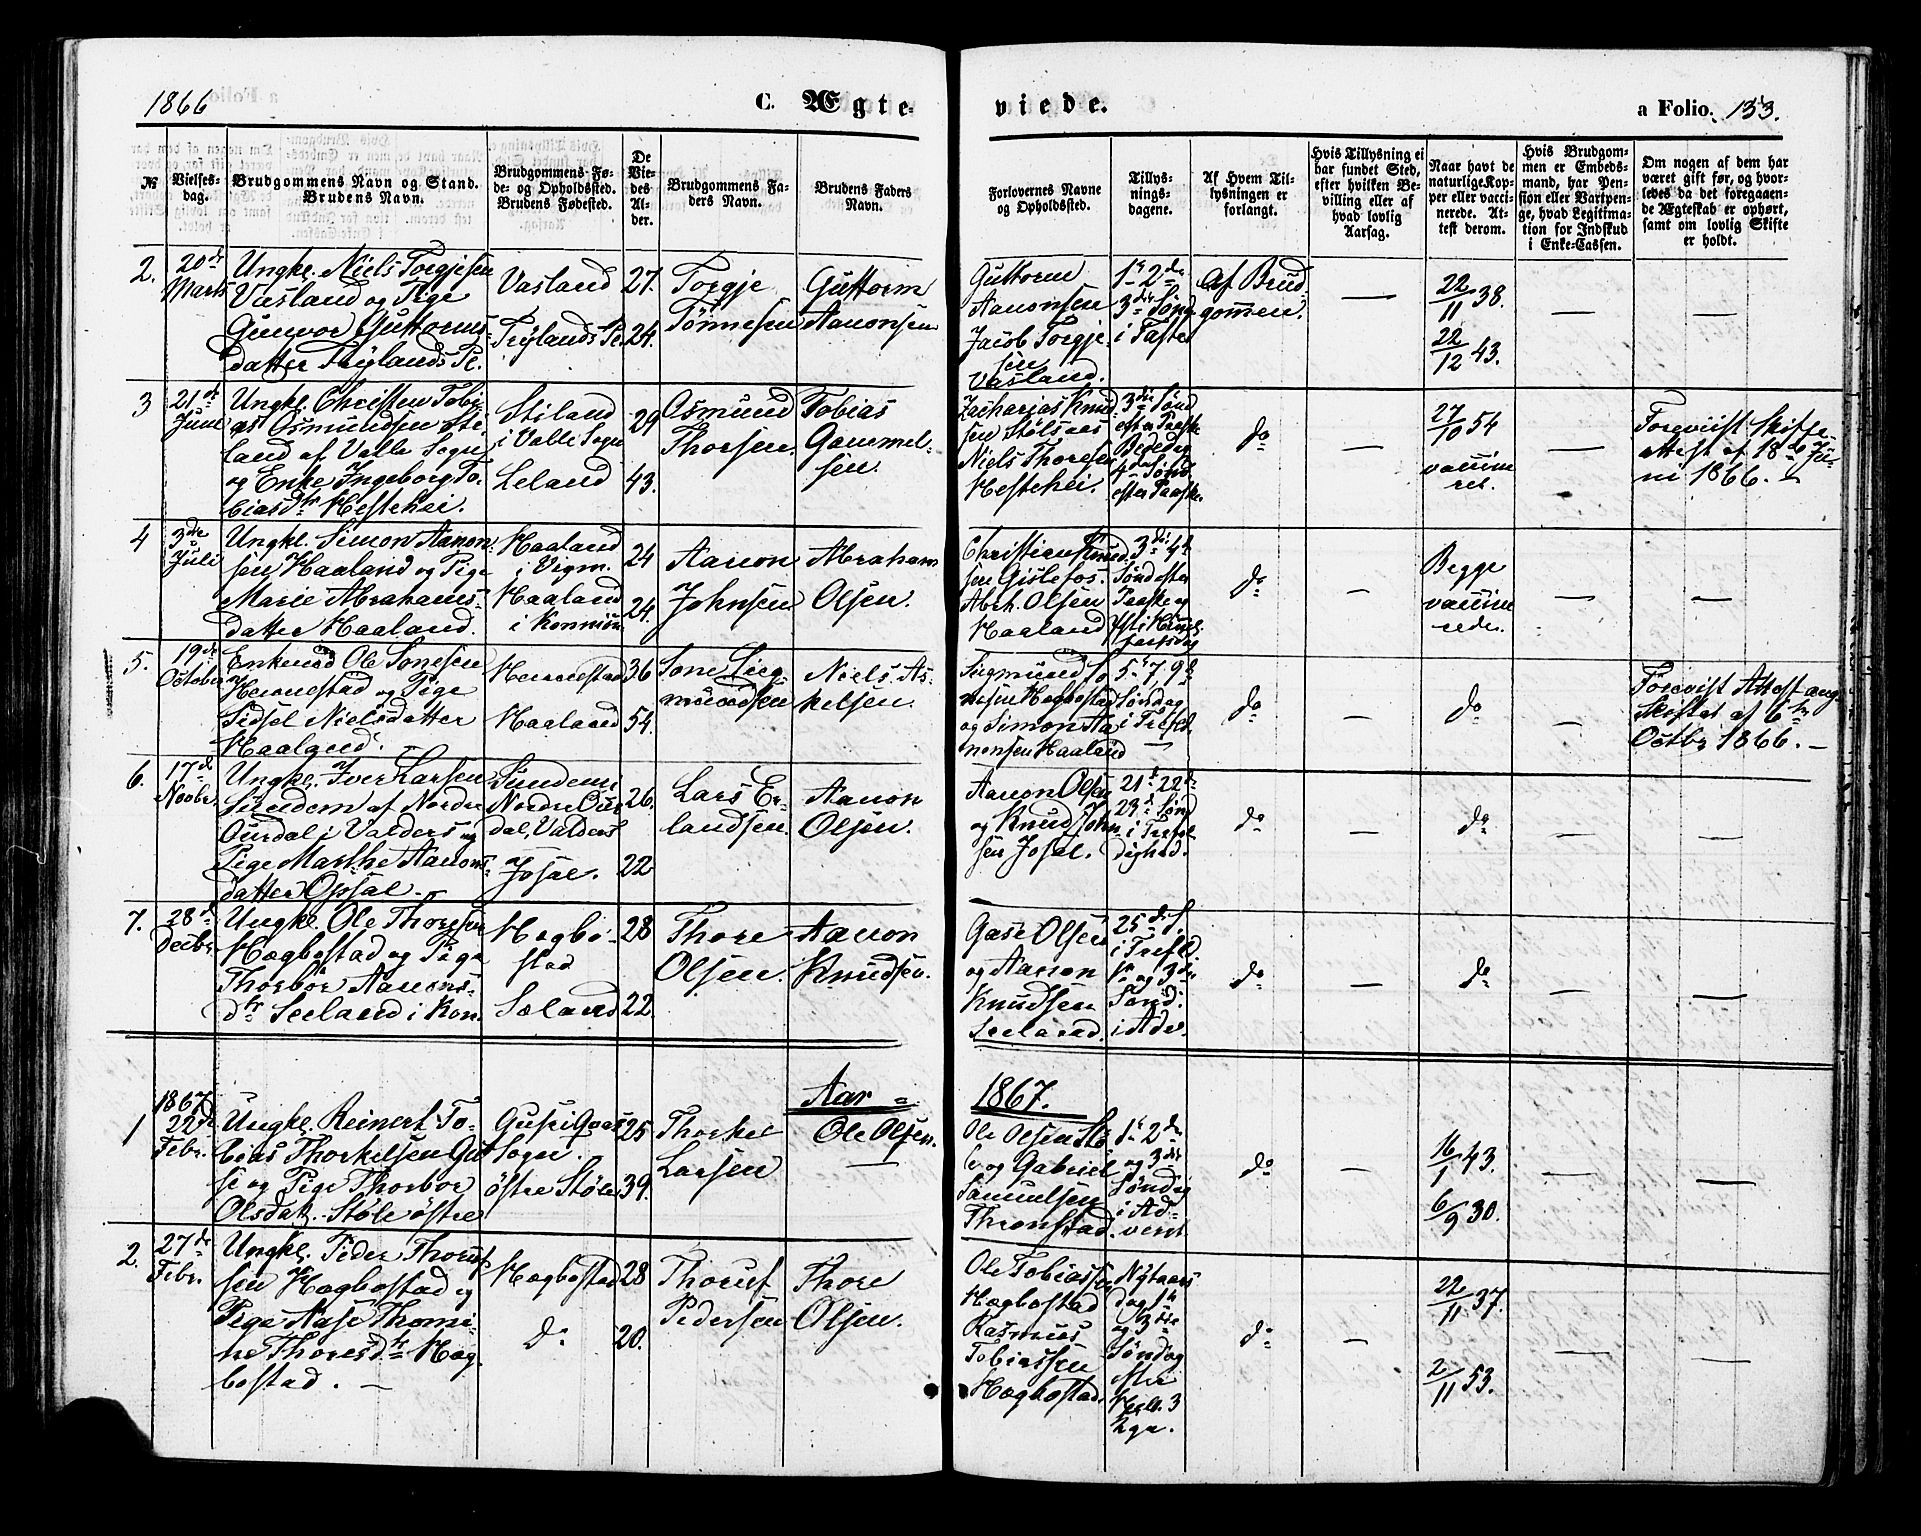 1866
C. Ægte-
viede.
a Folio. 133.
№
Vielses-
dag.
Brudgommens Navn og Stand.
Brudens Navn.
Brudgommens Fø-
de- og Opholdssted.
Brudens Fødested.
De
Vie-
des
Al-
der.
Brudgommens Fa-
ders Navn.
Brudens Faders
Navn.
Forlovernes Navne
og Opholdssted.
Tillys-
nings-
dagene.
Af Hvem Til-
lysningen er
forlangt.
Hvis Tillysning ei
har fundet Sted,
efter hvilken Be-
villing eller af
hvad lovlig
Aarsag.
Naar havt de
naturlige Kop-
per eller vacci-
nerede. At-
test derom.
Hvis Brudgom-
men er Embeds-
mand, har Pen-
sion eller Vartpen-
ge, hvad Legitima-
tion for Indskud
i Enke-Cassen.
Om nogen af dem har
været gift før, og hvor-
ledes da det foregaaen-
de Ægteskab er ophørt,
samt om lovlig Skifte
er holdt.
2.
20de
Marts
Ungkl. Niels Torgjesen
Vasland og Pige
Gunvor Guttorms-
datter Trylands Te.
Vasland
Trylands Te.
27.
24.
Torgje
Tønnesen
Guttorm
Aanonsen
Guttorm
Aanonsen
Jacob Torgje-
sen
Vasland.
1ste 2den
3die Sønd
i Faste
Af Brud
gommen.
—
22/11 38.
22/12 43.
—
—
3
21de
Juni
Ungkl. Christen Tobi-
as Osmundsen Sti-
land af Valle Sogn
og Enke Ingeborg To-
biasdtr Hestehei.
Stiland
i Valle Sogn
Leland
29
43.
Osmund
Thorsen.
Tobias
Gammel-
sen.
Zacharias Knud
sen Stølsnes
Niels Thorsen
Hestehei.
3die Sønd
efter Paaske
Bededag
4de Sønd
efter Paaske.
do
—
27/10 54
vaccine
ret.
—
Foreviist Skifte-
attest af 18de Ju-
ni 1866. —
4
3die
Juli
Ungkl. Simon Aanon-
sen Haaland og Pige
Marie Abrahams-
datter Haaland.
Haaland
i Vigm.
Haaland
i Konsmo.
24
24.
Aanon
Johnsen
Abraham
Olsen.
Christian Knud-
sen Gislefos.
Abrh. Olsen
Haaland
3die 4de
Sønd efter
Paaske og
Christi Himmel-
fartsdag
do
—
Begge
vaccine
rede.
—
—
5.
19de
October
Enkemd Ole Sonesen
Hennestad og Pige
Sidsel Nielsdatter
Haaland.
Hennestad
Haaland
36
54.
Sone Sieg-
mundsen
Niels As-
kelsen.
Siegmund So-
nesen Hægbostad
og Simon Aa-
nonsen Haaland
5te 7, 9de
Søndag
i Trefold.
—
do
—
do
—
Foreviist Attest ang.
Skiftet af 6te
Octbr 1866. —
6.
17de
Novbr.
Ungkl. Iver Larsen
Sundem af Nordre
Ourdal i Valders og
Pige Marthe Aanons-
datter Opsal.
Sundem i
Nordre Our
dal, Valders
Josal.
26.
22
Lars Er-
landsen.
Aanon
Olsen.
Aanon Olsen
og Knud John
sen Josal.
21de 22de
23de Sønd
i Trefol
dighed.
do
—
do
—
—
7.
28de
Decbr.
Ungkl. Ole Thoresen
Hægbostad og Pige
Thorbor Aanons-
dtr Seeland i Kon.
Hægbo-
stad
Sæland
28
22.
Thore
Olsen.
Aanon
Knudsen.
Gase Olsen
og Aanon
Knudsen
Seeland.
25de S.
i Trefld.
1ste og 3die
Sønd.
i Adv.
do
—
do
—
—
Aar =
1867.
1
1867
22de
Febr.
Ungkl. Reinert To-
bias Thorkelsen Gu-
se og Pige Thorbor
Olsdatt. Støle østre
Guse i Qvas
Sogn.
østre Støle
25
39.
Thorkel
Larsen
Ole Olsen.
—
Ole Olsen Stø-
le og Gabriel
Samuelsen
Thronstad.
1ste 2den
og 3die
Søndag
i Ad-
vent
do
—
16/1 43.
6/9 30.
—
—
2.
27de
Febr.
Ungkl. Peder Thorus-
sen Hægbostad og
Pige Aase Thomi-
ne Thoresdtr Hæg-
bostad. —
Hægbostad
do
28
20.
Thorus
Pedersen
Thore
Olsen.
Ole Tobiassen
Hægbostad
Rasmus
Tobiassen
Hægbostad.
Nytaars
dag 1ste
og 3die
Søndag
efter
Hell. 3
Kgr.
do
—
22/11 37.
2/11 53.
—
—